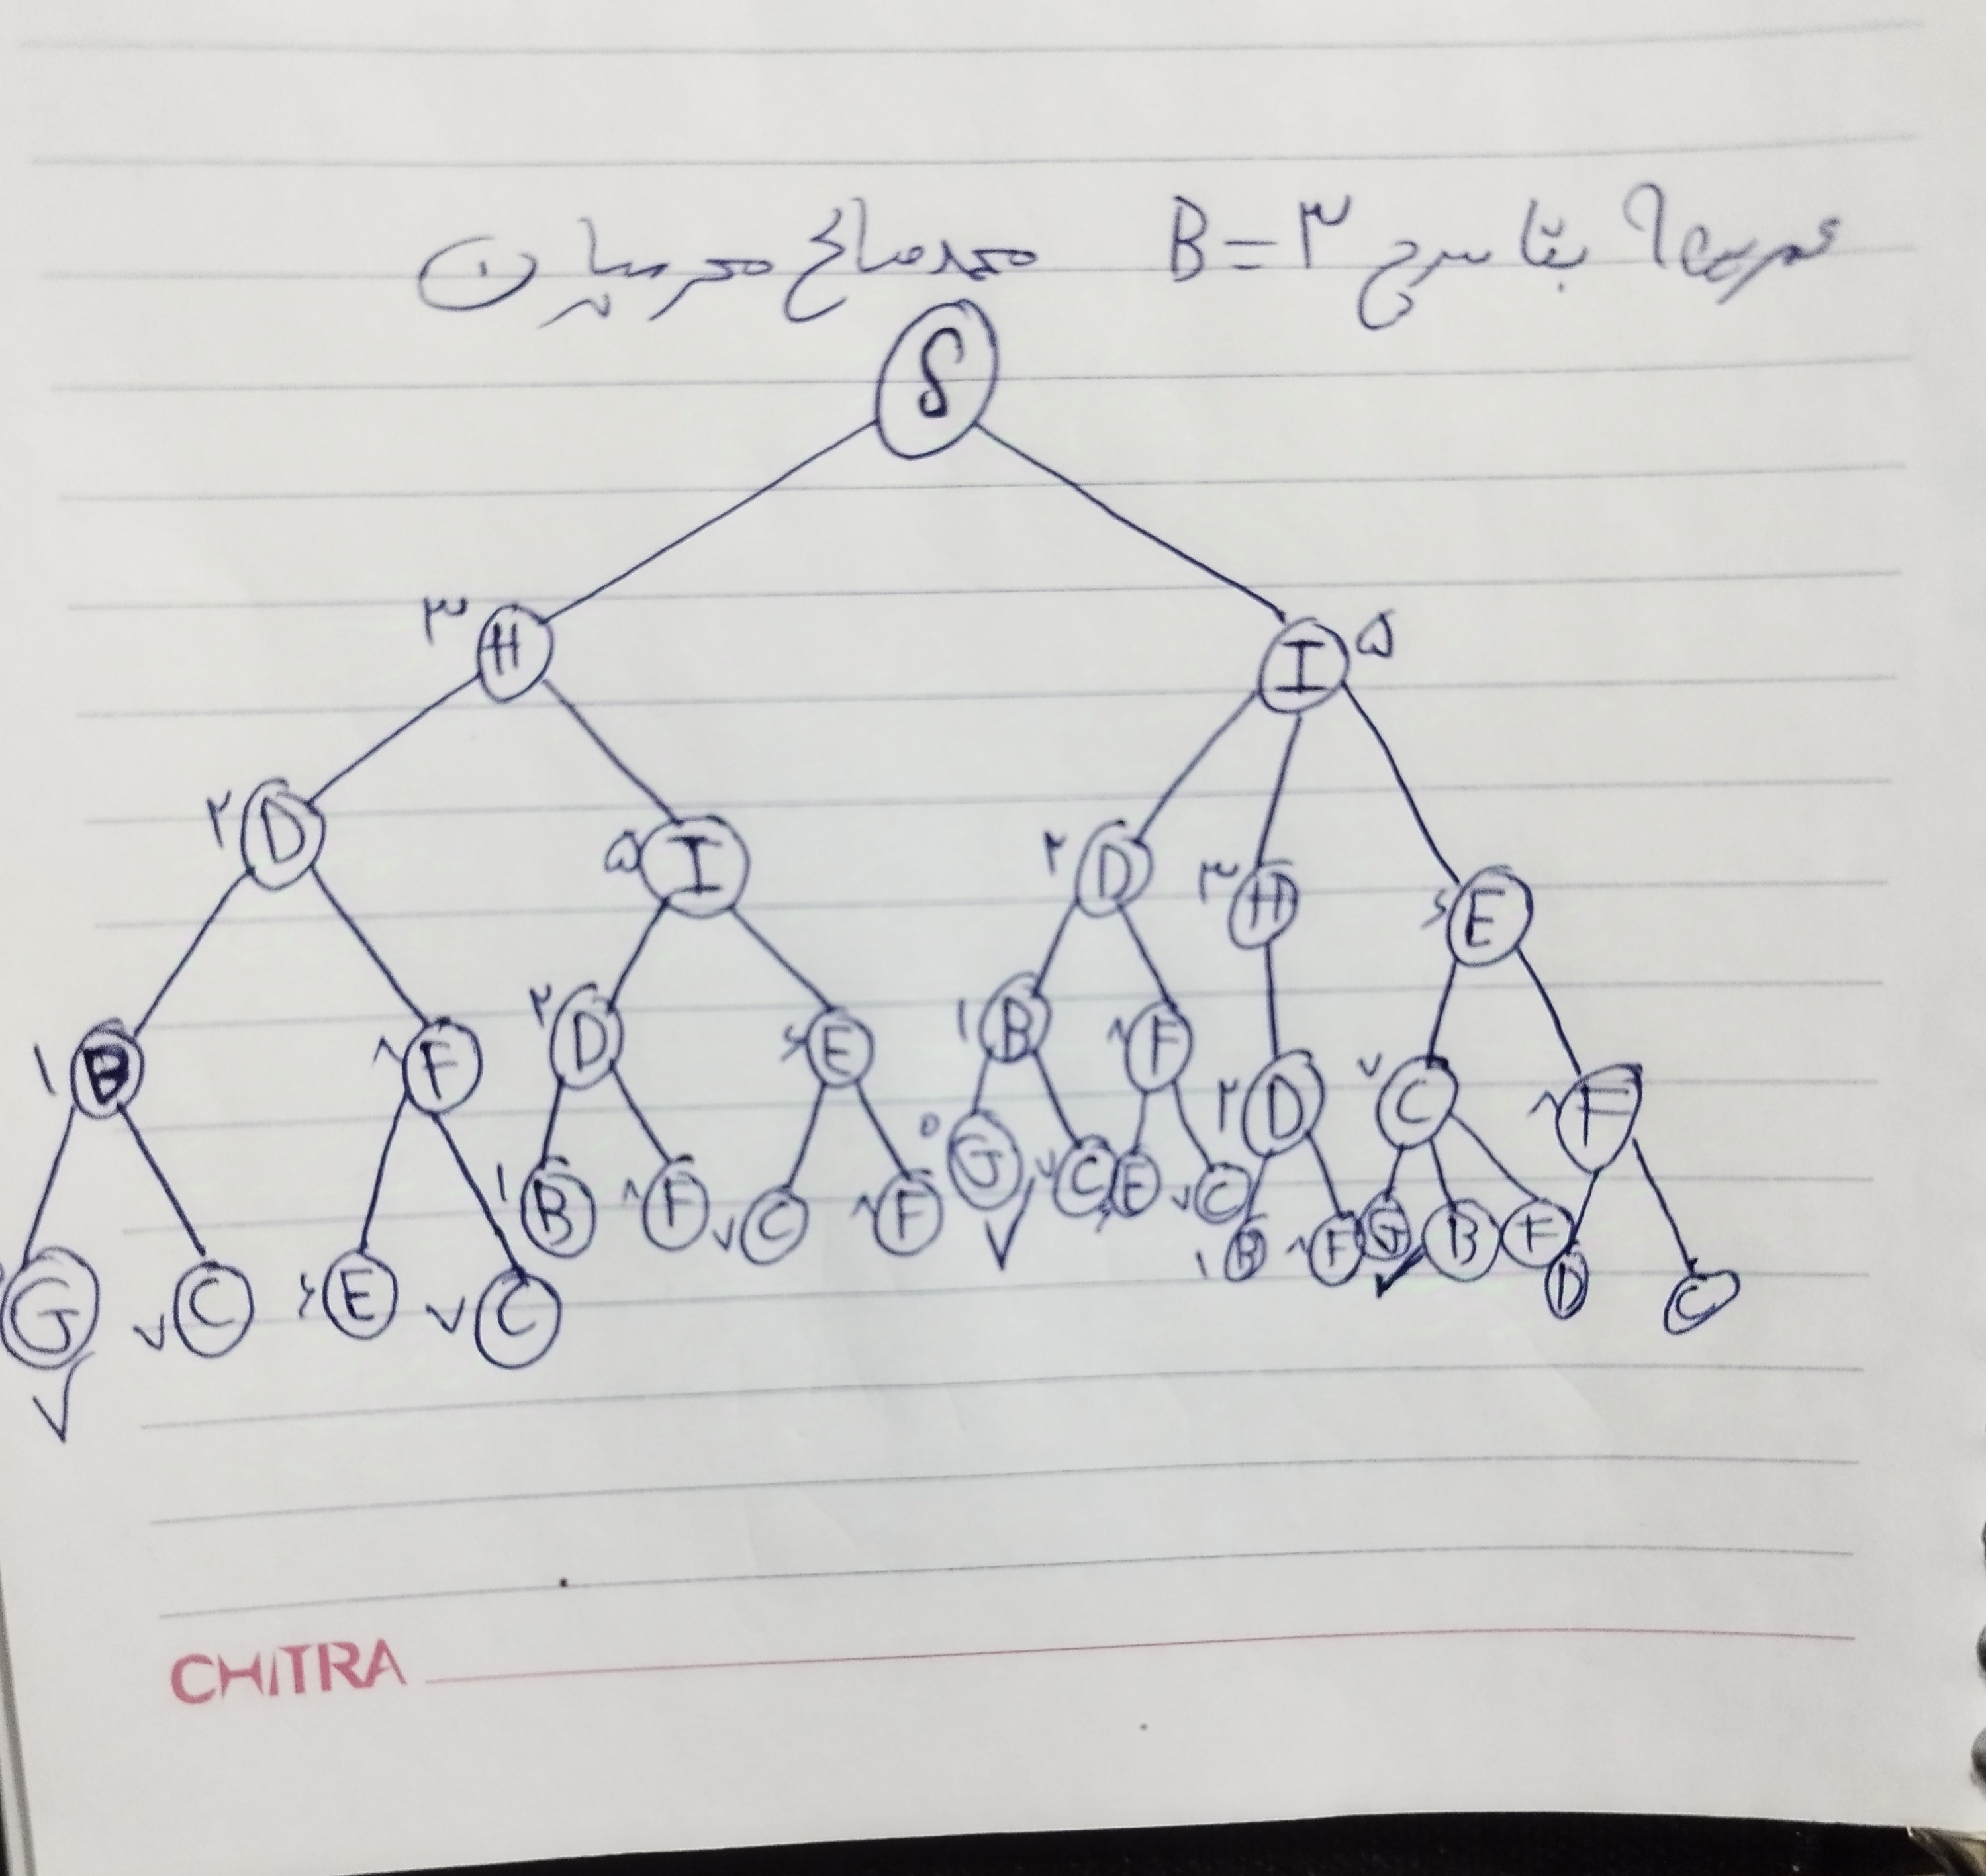 تمرین ۹ بقا سرچ B=۳ محمدصالح محرمیان
S
۳ H I ۵
۲ D ۵ I ۲ D ۳ H ۶ E
۱ B ۸ F ۲ D ۶ E ۱ B ۸ F ۲ D ۷ C ۸ F
G ۷ C ۶ E ۷ C ۱ B ۸ F ۷ C ۸ F ۰ G ۷ C ۶ E ۷ C ۱ B ۸ F G B F D C
CHITRA